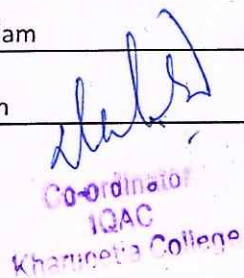 am
n
Co-ordinator
IQAC
Kharupetia College